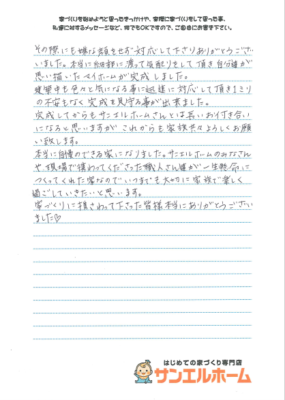 家づくりを始めようと思ったきっかけや、実際に家づくりをして思った事、
私達に対するメッセージなど、何でもOKですので、ご自由にお書き下さい。
その際にも嫌な顔をせず対応して下さりありがとうござ
いました。本当に 渡って 頂き自分達が
思い描いたマイホームが完成しました。
建築中も色々と気になる事に迅速に対応して頂きまとり
の不安もなく完成を見守る事が出来ました。
完成してからもサンエルホームさんとは長いお付き合い
になると思いますが これからも家族共々よろしくお願
い致します。
本当に自慢のできる家になりました。サンエルホームのみなさん
や現場で携わってくださった職人さん達が一生懸命に
つくってくれた家なのでいつまでも大切に家族で楽しく
過ごしていきたいと思います。
家づくりに携さわって下さった皆様本当にありがとうござい
ました♡
はじめての家づくり専門店
サンエルホーム